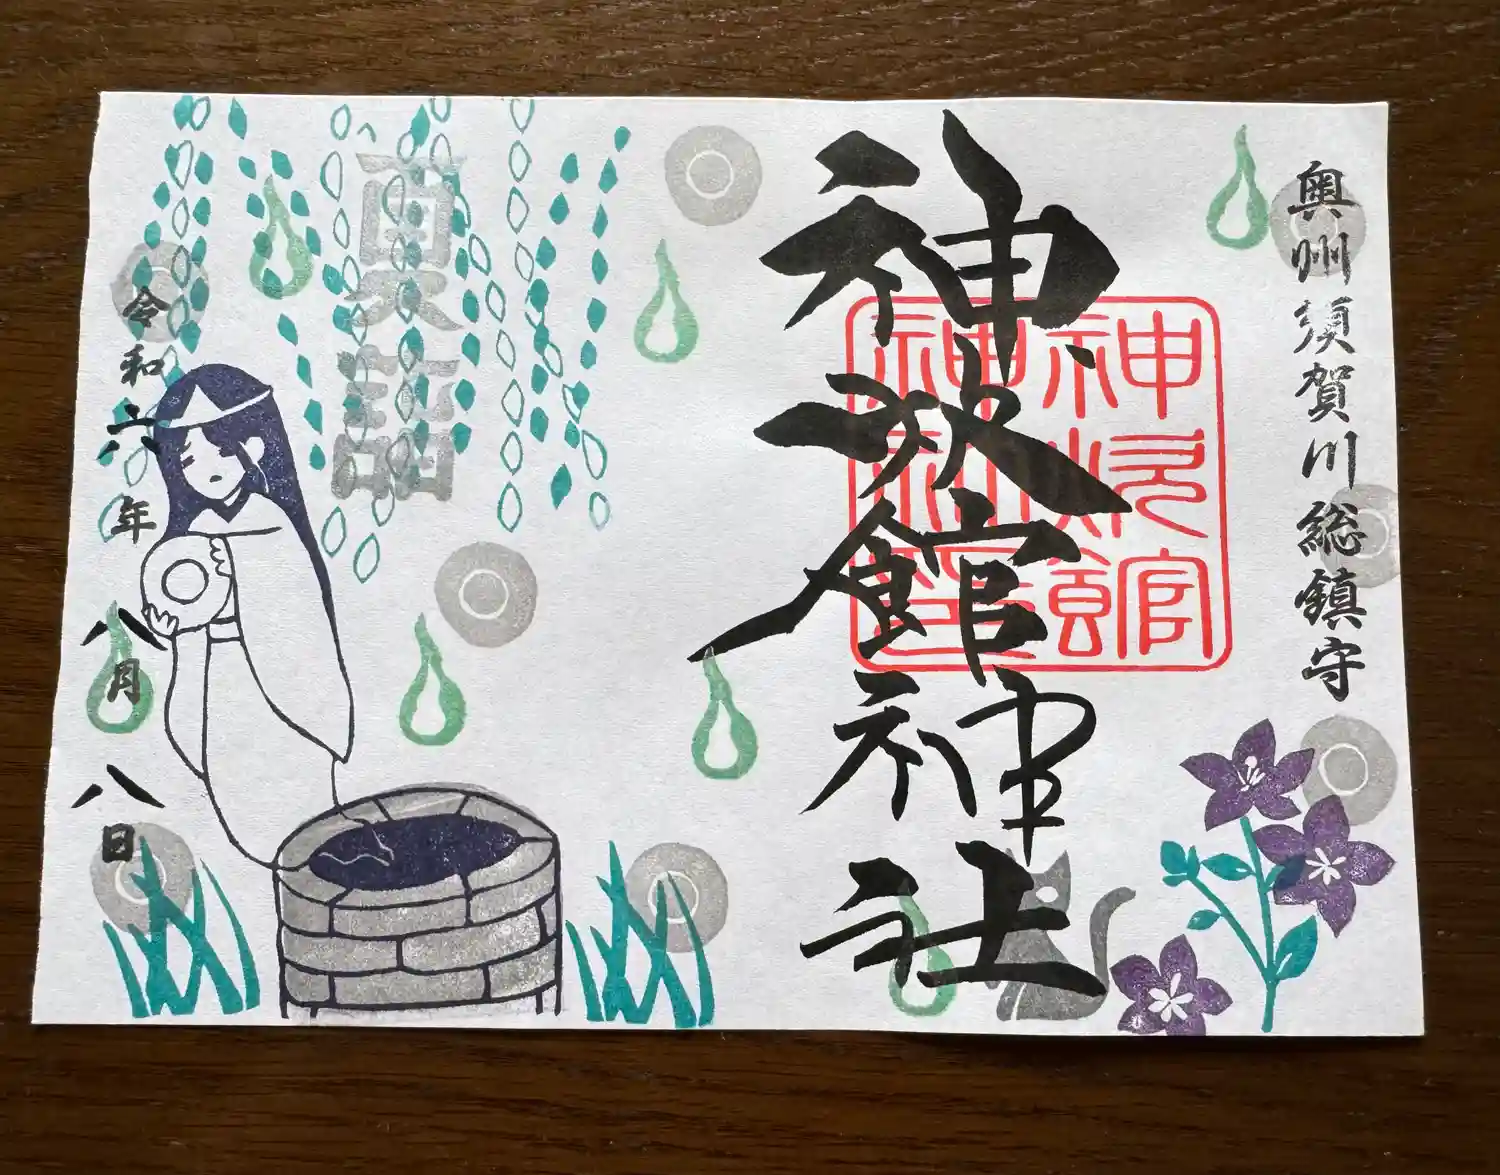 奥州須賀川総鎮守
神炊館神社
神炊館
神社印
夏詣
令和六年八月八日